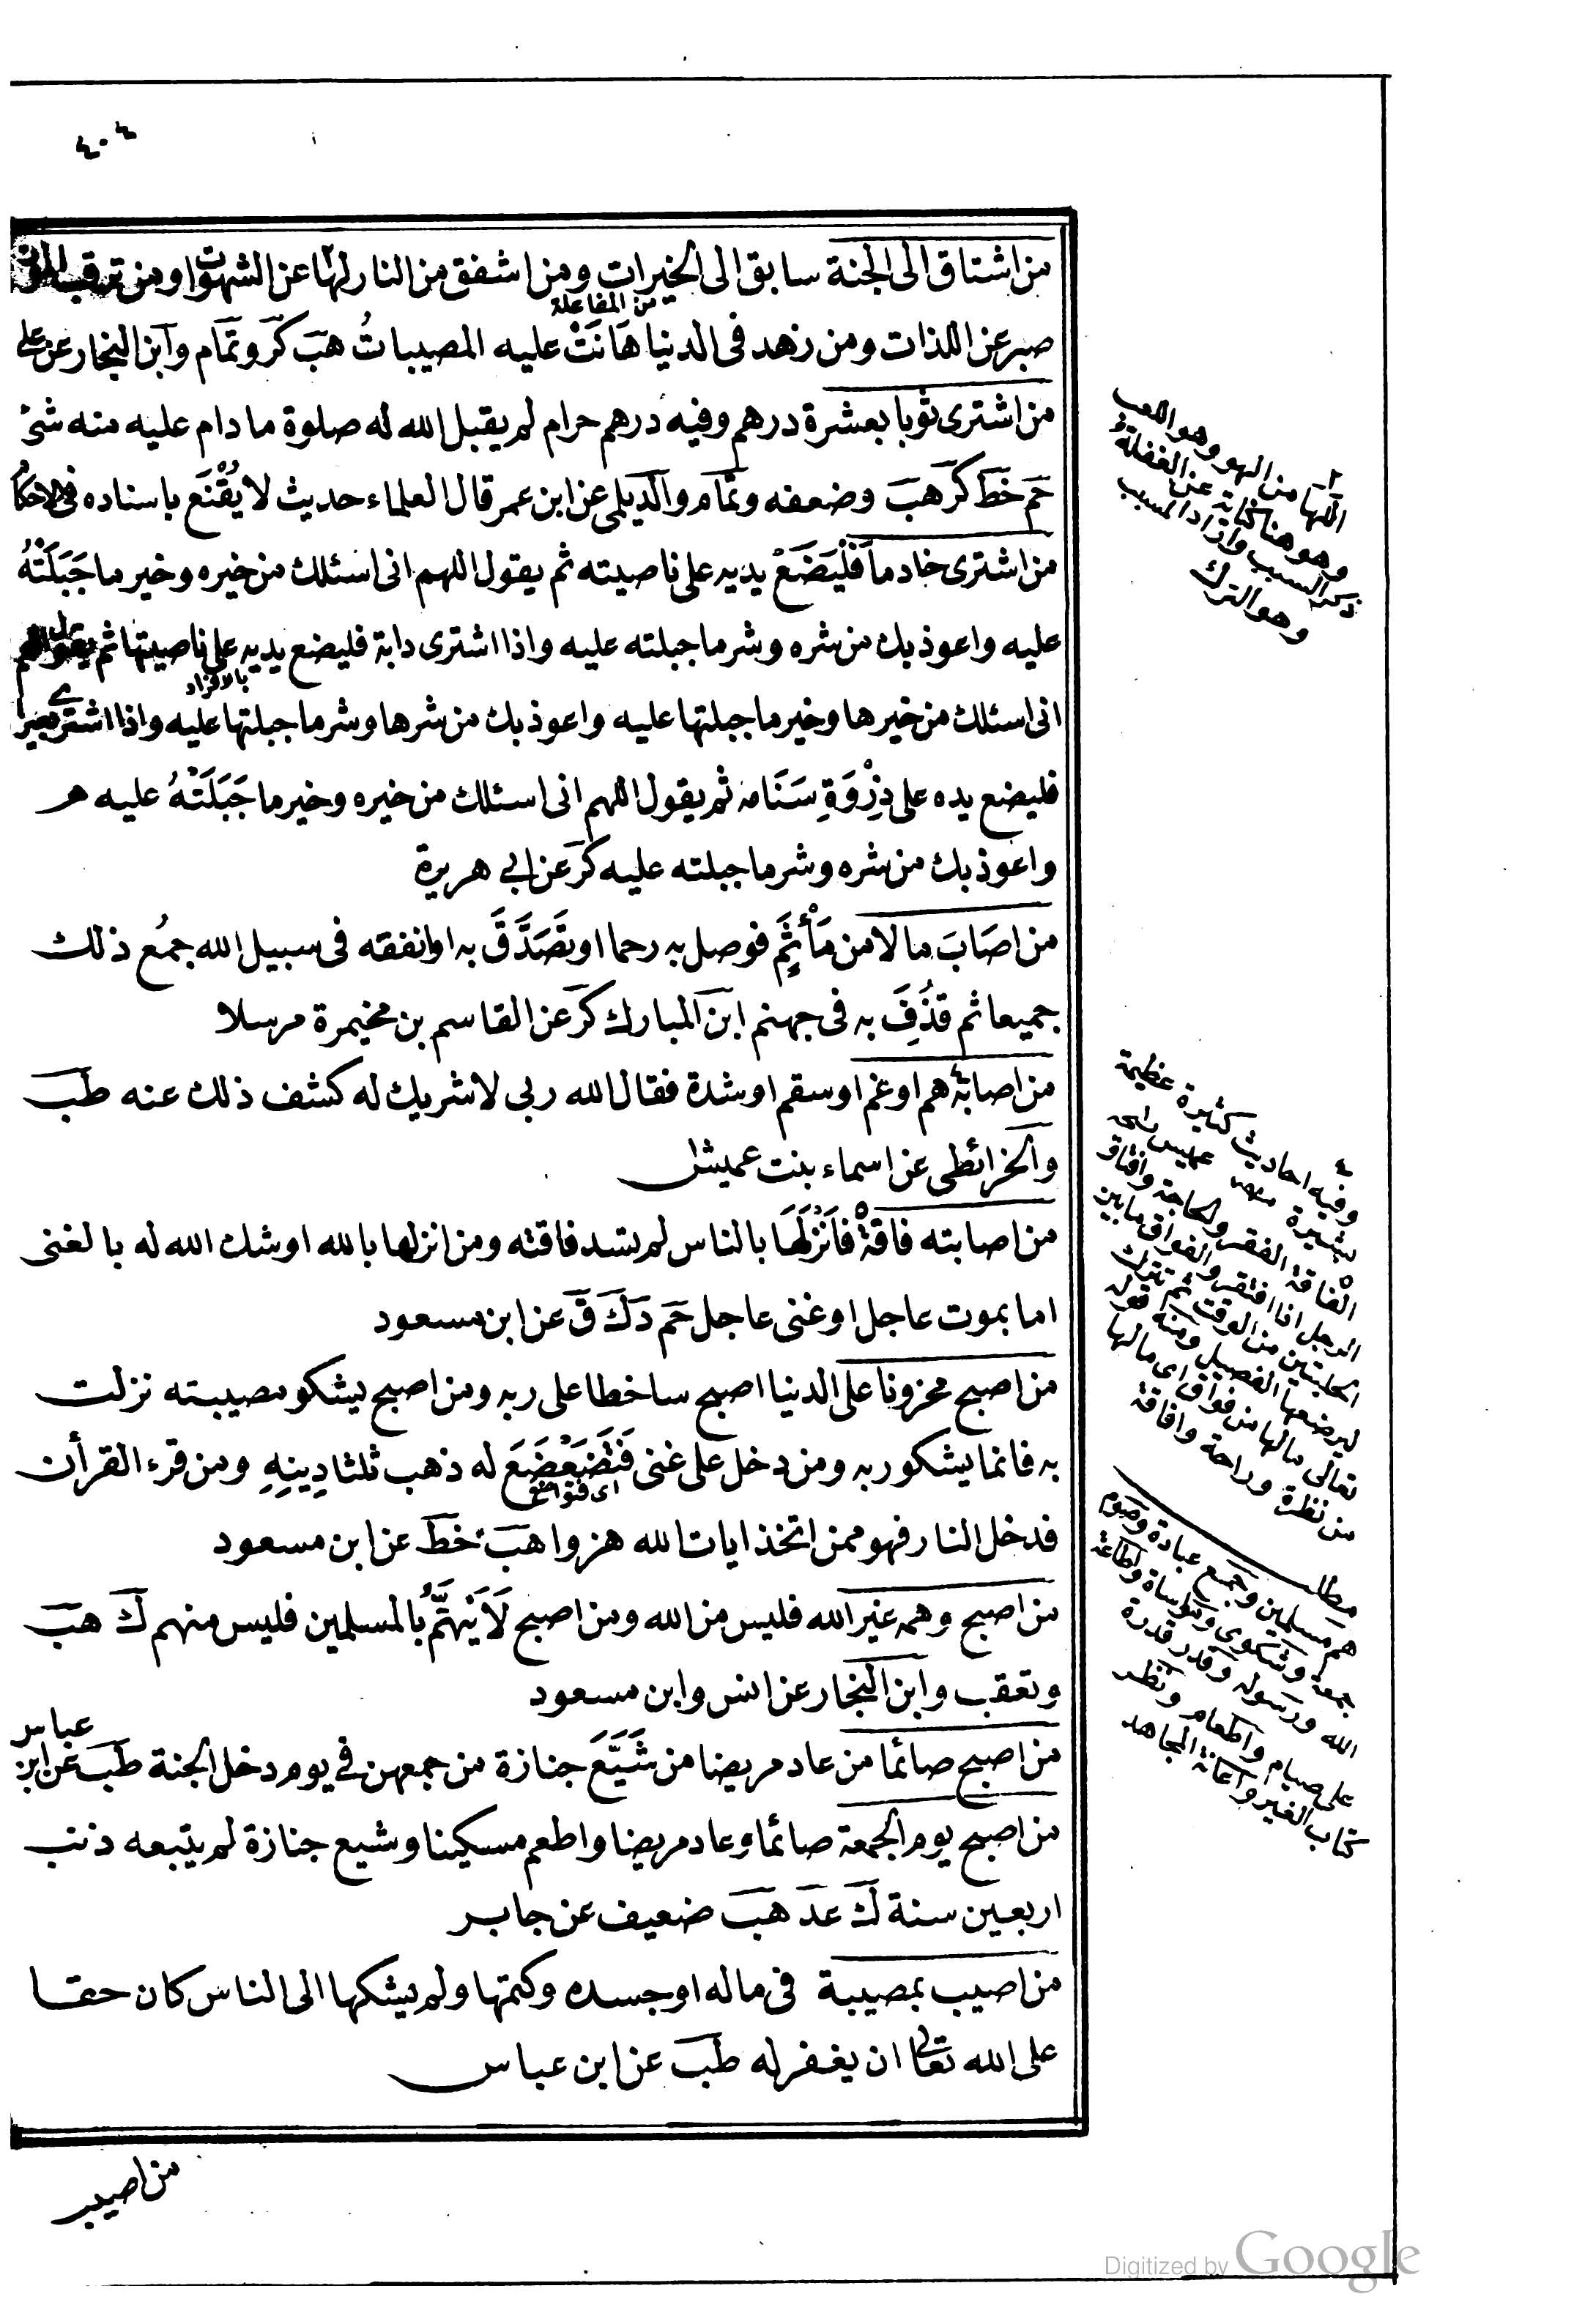 ٤٠٤
من اشتاق الى الجنة سابق الى الخيرات ومن اشفق من النار لها عن الشهوات ومن ترقب الموت
صبر عن اللذات ومن زهد فى الدنيا هَانَتْ عليه المصيباتُ هب كر وتمام وابن النجار عن على
من المفاعلة
من اشترى ثوبا بعشرة درهم وفيه درهم حرام لم يقبل الله له صلوة ما دام عليه منه شئ
حم خط كر هب وضعفه وتمام والديلمى عن ابن عمر قال العلماء حديث لا يُقْنَع باسناده فى الاحكام
من اشترى خادما فَلْيَضَعْ يديه على ناصيته ثم يقول اللهم انى اسئلك من خيره وخير ما جَبَلَتْهُ
عليه واعوذ بك من شره وشر ما جبلته عليه واذا اشترى دابة فليضع يديه على ناصيتها ثم يقول اللهم
انى اسئلك من خيرها وخير ما جبلتها عليه واعوذ بك من شرها وشر ما جبلتها عليه واذا اشترى بعيرا
بالافراد
فليضع يده على ذِرْوَةِ سَنَامه ثم يقول اللهم انى اسئلك من خيره وخير ما جَبَلَتْهُ عليه
واعوذ بك من شره وشر ما جبلته عليه كر عن ابى هريرة
من اصَابَ مالا من مَأْثَمٍ فوصل به رحما او تَصَدَّقَ به او انفقه فى سبيل الله جمع ذلك
جميعا ثم قذُفَِ به فى جهنم ابن المبارك كر عن القاسم بن مخيمرة مرسلا
من اصابه هم او غم او سقم او شدة فقال الله ربى لا شريك له كشف ذلك عنه طب
والخرائطى عن اسماء بنت عميش
من اصابته فاقةٌ فَاَنْزَلَهَا بالناس لم تسد فاقته ومن انزلها بالله اوشك الله له بالغنى
اما بموت عاجل او غنى عاجل حم د ك ق عن ابن مسعود
من اصبح محزونا على الدنيا اصبح ساخطا على ربه ومن اصبح يشكو مصيبته نزلت
به فانما يشكو ربه ومن دخل على غنى فَتَضَعْضَعَ له ذهب ثلثا دِينِهِ ومن قرء القرأن
اى فتواضع
فدخل النار فهو ممن اتخذ ايات الله هزوا هب خط عن ابن مسعود
من اصبح وهمه غير الله فليس من الله ومن اصبح لَا يَهْتَمُّ بالمسلمين فليس منهم ك هب
وتعقب وابن النجار عن انس وابن مسعود
من اصبح صائما من عاد مريضا من شَيَّعَ جنازة من جمعهن فى يوم دخل الجنة طب عن ابن عباس
من اصبح يوم الجمعة صائما وعاد مريضا واطعم مسكينا وشيع جنازة لم يتبعه ذنب
اربعين سنة ك عد هب ضعيف عن جابر
من اصيب بمصيبة فى ماله او جسده وكتمها ولم يشكها الى الناس كان حقا
على الله تعالى ان يغفر له طب عن ابن عباس
من اصيب
٢
اللها من الهو وهو اللعب
وهو هنا كناية عن الغفلة
ذكر السبب واراد المسبب
وهو الترك
٤
وفيه احاديث كثيرة عظيمة
بشيرة
٥
الفاقة الفقر والحاجة وافتاق
الرجل اذا افتقر والفواق ما بين
الحلبتين من الوقت ثم تترك
ليرضعها الفصيل ومنه قوله
تعالى مالها من فواق اى مالها
من نظرة وراحة وافاقة
مطلب
هم مسلمين وجمع عبادة وصوم
جمعة وشكوى ومواساة وطاعة
الله ورسوله وقدر قدرة
على صيام واطعام ونظر
كتاب الغير واعانة المجاهد
Digitized by Google